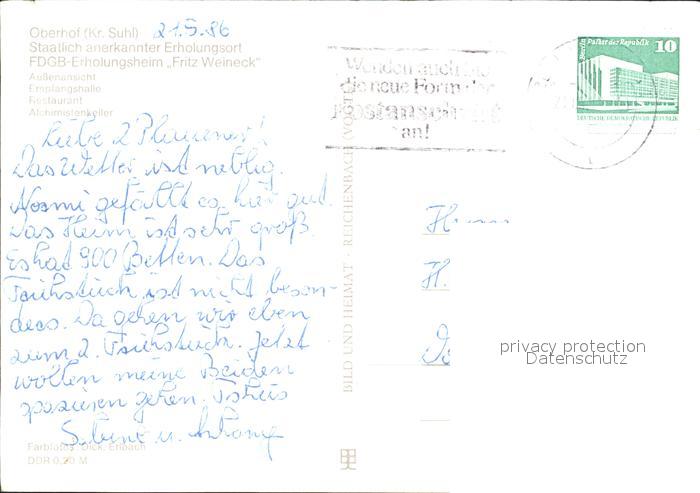 Oberhof (Kr. Suhl) 21.5.86
Staatlich anerkannter Erholungsort
FDGB-Erholungsheim „Fritz Weineck"
Außenansicht
Empfangshalle
Restaurant
Alchimistenkeller
Wenden auch Sie
die neue Form der
Postanschrift
an!
Berlin Palast der Republik 10
DEUTSCHE DEMOKRATISCHE REPUBLIK
Liebe 2 Plauener!
Das Wetter ist neblig.
gefällt es hier gut.
Das Heim ist sehr groß.
Es hat 900 Betten. Das
Frühstück ist nicht beson-
ders. Da gehen wir eben
zum 2. Frühstück. Jetzt
wollen meine Beiden
spazieren gehen. Tschüs
u.
BILD UND HEIMAT · REICHENBACH (VOGTL)
H
H.
privacy protection
Datenschutz
Farbfotos: Dick, Erlbach
DDR 0,20 M